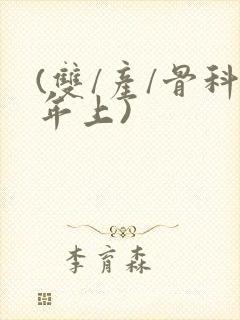 (雙/產/骨科
年上)
李育森